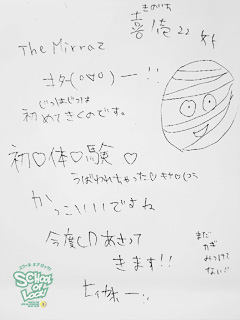 きのいち
喜壱22才
The Mirraz
ヨター(°∀°)ー!!
じつはじつは
初めてきくのです。
初♡体♡験♡
うばわれちゃった
かっこいいですね
今度CDあさって
きます!!
まだ
カギ
みつけて
ない!!
SCHOOL OF LOCK!